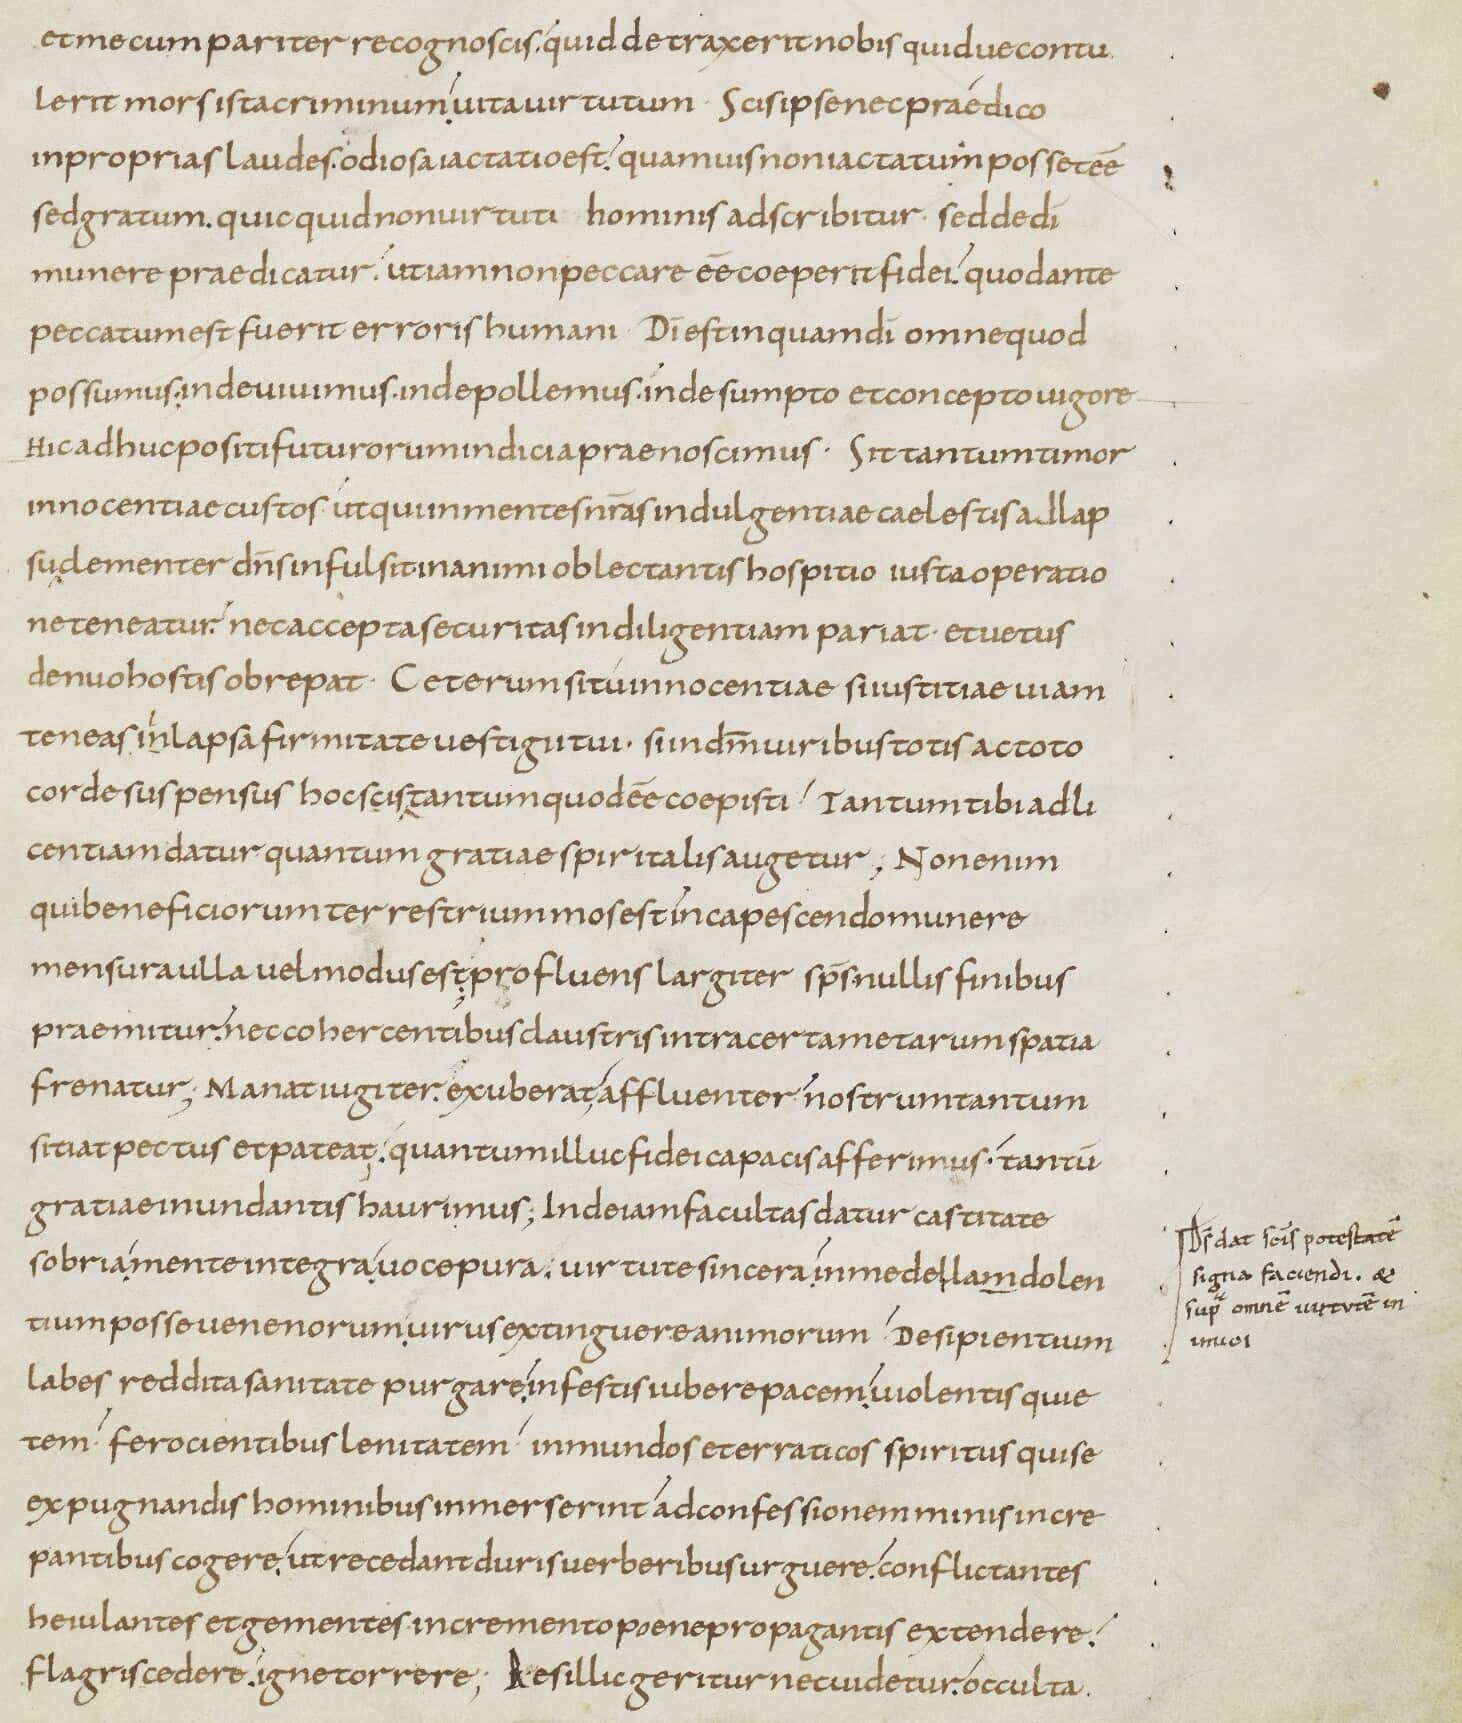 et mecum pariter recognoscis. quid detraxerit nobis quidue contu
lerit mors ista criminum; uita uirtutum. Scis ipse nec praedico
in proprias laudes. odiosa iactatio est. quamuis non iactatum posset eē
sed gratum. quicquid non uirtuti hominis adscribitur. sed de dī
munere praedicatur. ut iam non peccare eē coeperit fidei. quod ante
peccatum est fuerit erroris humani. Dī est inquam dī omne quod
possumus; inde uiuimus. inde pollemus. inde sumpto et concepto uigore
Hic adhuc positi futurorum indicia praenoscimus. Sit tantum timor
innocentiae custos. ut qui in mentes nrās indulgentiae caelestis adlap
su clementer dn̄s infulsit. in animi oblectantis hospitio iusta operatio
ne teneatur. nec accepta securitas indiligentiam pariat. et uetus
denuo hostis obrepat. Ceterum si tu innocentiae si iustitiae uiam
teneas inlapsa firmitate uestigii tui. si in dm̄ uiribus totis ac toto
corde suspensus hoc scis tantum quod eē coepisti. Tantum tibi ad li
centiam datur quantum gratiae spiritalis augetur; Non enim
qui beneficiorum terrestrium mos est in capescendo munere
mensura ulla uel modus est; profluens largiter sps̄. nullis finibus
praemitur. nec cohercentibus claustris intra certa metarum spatia
frenatur; Manat iugiter. exuberat; affluenter nostrum tantum
sitiat pectus et pateat; quantum illuc fidei capacis afferimus. tantū
gratiae inundantis haurimus; Inde iam facultas datur castitate
sobria, mente integra, uoce pura. uirtute sincera in medellam dolen
tium posse uenenorum, uirus extinguere animorum. Desipientium
labes reddita sanitate purgare; infestis iubere pacem; uiolentis quie
tem. ferocientibus lenitatem. inmundos et erraticos spiritus qui se
expugnandis hominibus inmerserint ad confessionem minis incre
pantibus cogere. ut recedant duris uerberibus urguere. conflictantes
heiulantes et gementes. incremento poene propagantis extendere.
flagris cedere. igne torrere; Res illic geritur nec uidetur. occulta
Ds̄ dat scīs potestatē
signa faciendi. &
sup omnē uirtutē in